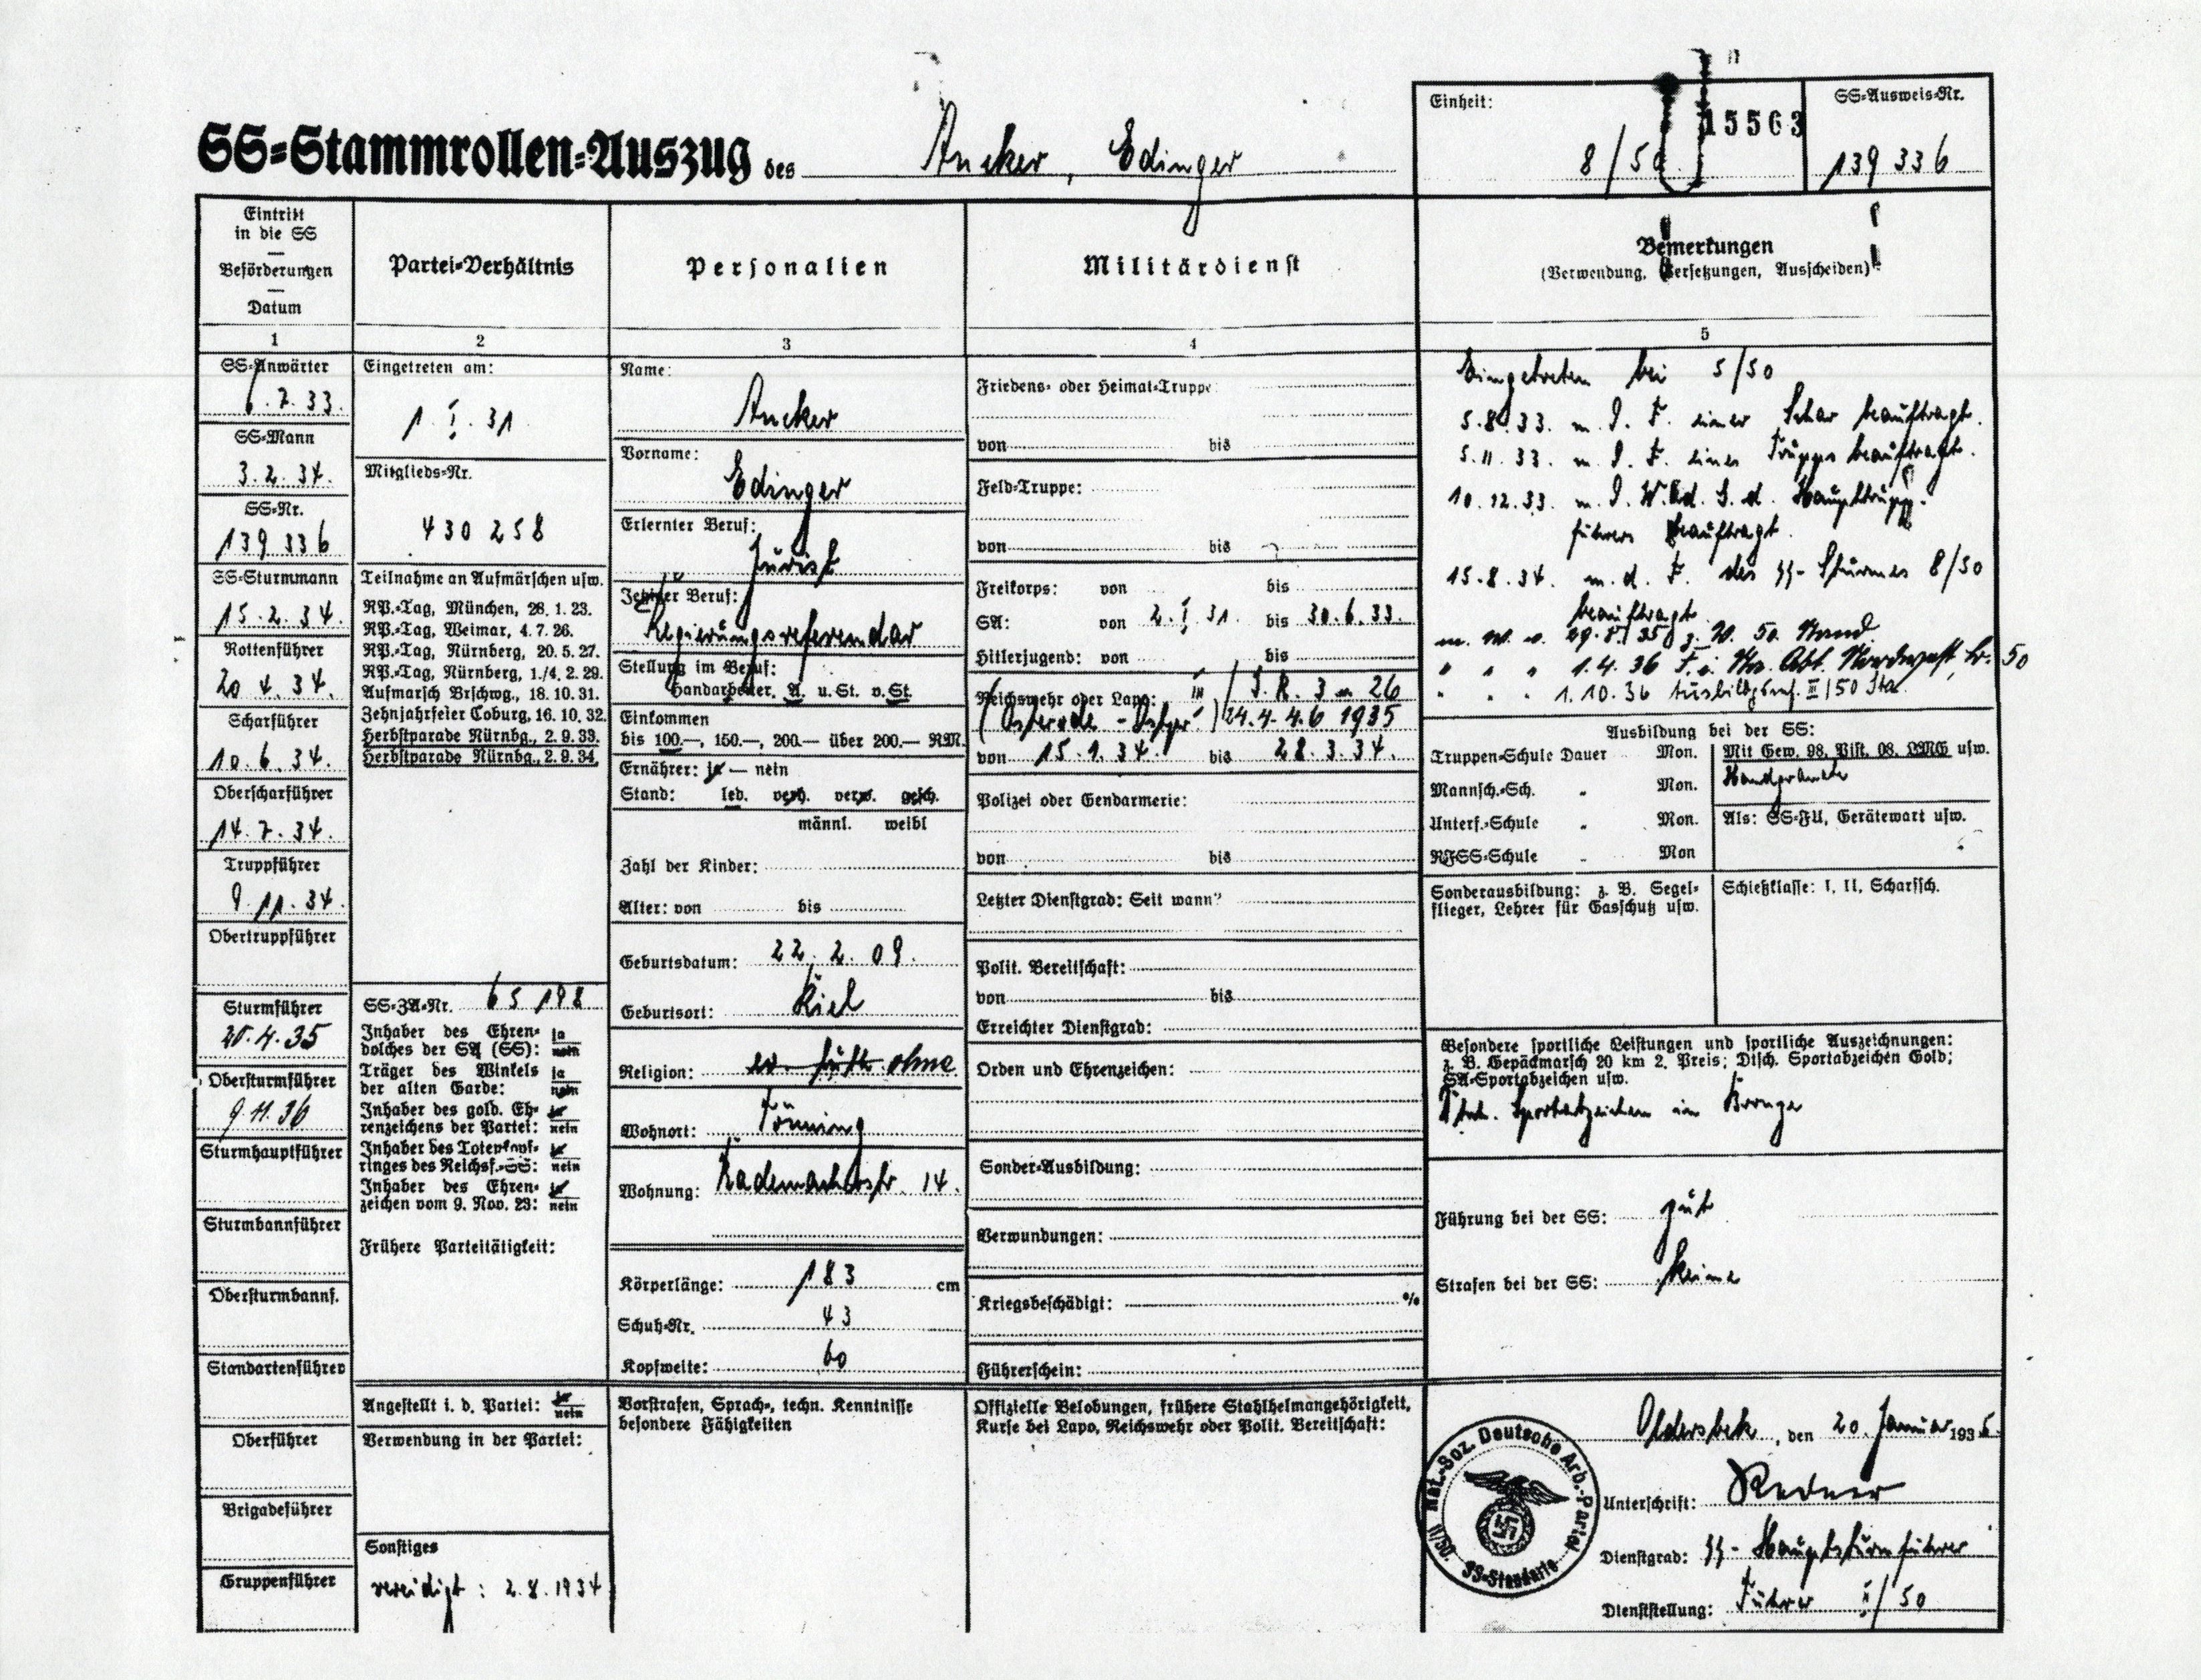 SS=Stammrollen=Auszug des Ancker, Edinger
Einheit:
8/50
15563
SS=Ausweis=Nr.
139 336
Eintritt
in die SS
—
Beförderungen
—
Datum
1
SS=Anwärter
6.7.33.
SS=Mann
3.2.34.
SS=Nr.
139 336
SS=Sturmmann
15.2.34.
Rottenführer
20 4.34.
Scharführer
10.6.34.
Oberscharführer
14.7.34.
Truppführer
9.11.34.
Obertruppführer
Sturmführer
20.4.35
Obersturmführer
9.11.36
Sturmhauptführer
Sturmbannführer
Obersturmbannf.
Standartenführer
Oberführer
Brigadeführer
Gruppenführer
Partei=Verhältnis
2
Eingetreten am:
1.I.31
Mitglieds=Nr.
430 258
Teilnahme an Aufmärschen usw.
RP.=Tag, München, 28. 1. 23.
RP.=Tag, Weimar, 4. 7. 26.
RP.=Tag, Nürnberg, 20. 5. 27.
RP.=Tag, Nürnberg, 1./4. 2. 29.
Aufmarsch Brschwg., 18. 10. 31.
Zehnjahrfeier Coburg, 16. 10. 32.
Herbstparade Nürnbg., 2. 9. 33.
Herbstparade Nürnbg., 2. 9. 34.
SS=ZA=Nr. 65 198
Inhaber des Ehren= ja
dolches der SA (SS): nein
Träger des Winkels ja
der alten Garde: nein
Inhaber des gold. Eh= ja
renzeichens der Partei: nein
Inhaber des Totenkopf= ja
ringes des Reichsf.=SS: nein
Inhaber des Ehren= ja
zeichen vom 9. Nov. 23: nein
Frühere Parteitätigkeit:
Angestellt i. d. Partei: ja nein
Verwendung in der Partei:
Sonstiges
vereidigt: 2.8.1934
Personalien
3
Name:
Ancker
Vorname:
Edinger
Erlernter Beruf:
Jurist
Jetziger Beruf:
Regierungsreferendar
Stellung im Beruf:
Handarbeiter, A. u. St. v. St.
Einkommen
bis 100.—, 150.—, 200.— über 200.— RM.
Ernährer: ja — nein
Stand: led. verh. verw. gesch.
männl. weibl
Zahl der Kinder:
Alter: von bis
Geburtsdatum: 22.2.09.
Geburtsort: Kiel
Religion: ev. luth. ohne
Wohnort: Tönning
Wohnung: Rademacherstr. 14.
Körperlänge: 183 cm
Schuh=Nr. 43
Kopfweite: 60
Vorstrafen, Sprach=, techn. Kenntnisse
besondere Fähigkeiten
Militärdienst
4
Friedens= oder Heimat=Truppe:
von bis
Feld=Truppe:
von bis
Freikorps: von bis
SA: von 2.I.31. bis 30.6.33.
Hitlerjugend: von bis
Reichswehr oder Lapo: III/ I.R. 3 u. 26
(Osterode - Ostpr.) 24.4.-4.6 1935
von 15.1.34. bis 28.3.34.
Polizei oder Gendarmerie:
von bis
Letzter Dienstgrad: Seit wann?
Polit. Bereitschaft:
von bis
Erreichter Dienstgrad:
Orden und Ehrenzeichen:
Sonder=Ausbildung:
Verwundungen:
Kriegsbeschädigt: %
Führerschein:
Offizielle Belobungen, frühere Stahlhelmangehörigkeit,
Kurse bei Lapo, Reichswehr oder Polit. Bereitschaft:
Bemerkungen
(Verwendung, Versetzungen, Ausscheiden)
5
Eingetreten bei 5/50
5.8.33. m. d. F. einer Schar beauftragt.
5.11.33. m. d. F. eines Trupps beauftragt.
10.12.33. m. d. W. d. G. d. Haupttrupp-
führers beauftragt.
15.8.34. m. d. F. des SS-Sturmes 8/50
beauftragt.
m. W. v. 29.8.35 z. 50. Stand.
" " " 1.4.36 50
" " " 1.10.36 II/50 Sta.
Ausbildung bei der SS:
Truppen=Schule Dauer Mon.
Mannsch.=Sch. „ Mon.
Unterf.=Schule „ Mon.
RFSS=Schule „ Mon
Mit Gew. 98, Pist. 08, LMG usw.
Handgranate
Als: SS=FU, Gerätewart usw.
Sonderausbildung: z. B. Segel=
flieger, Lehrer für Gasschutz usw.
Schießklasse: I, II, Scharfsch.
Besondere sportliche Leistungen und sportliche Auszeichnungen:
z. B. Gepäckmarsch 20 km 2. Preis; Dtsch. Sportabzeichen Gold;
SA=Sportabzeichen usw.
Dtsch. Sportabzeichen in Bronze
Führung bei der SS: gut
Strafen bei der SS: keine
Oldersbek, den 20. Januar 1935.
Unterschrift: Redner
Dienstgrad: SS-Hauptsturmführer
Dienststellung: Führer II/50
Nat.-Soz. Deutsche Arb.-Partei
II/50. SS-Standarte